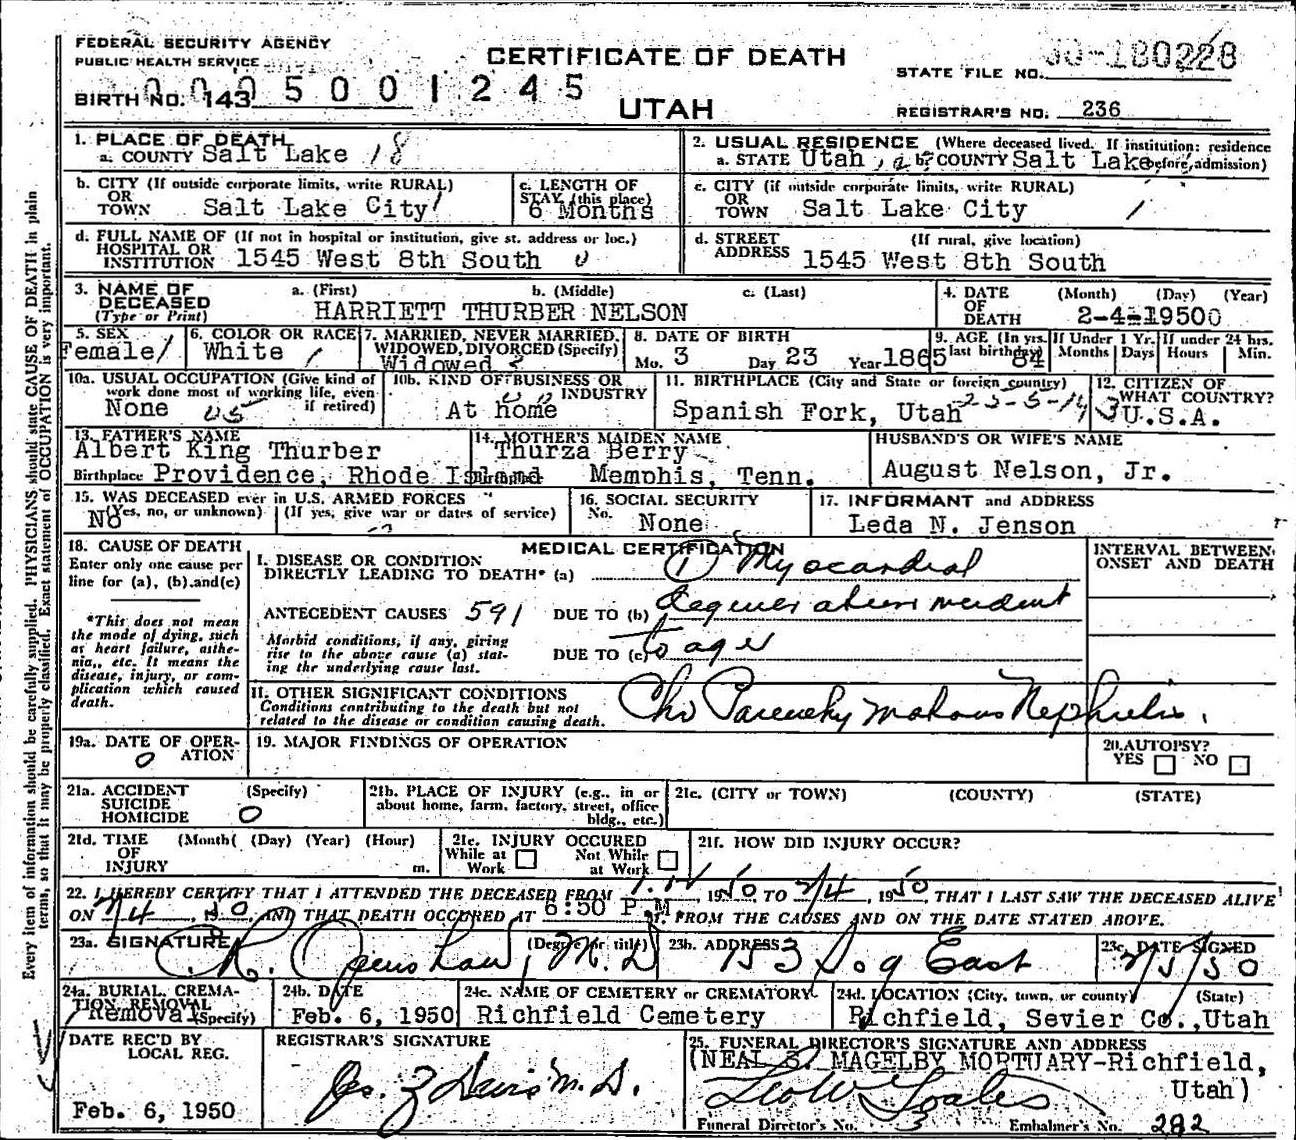 FEDERAL SECURITY AGENCY
PUBLIC HEALTH SERVICE
CERTIFICATE OF DEATH
UTAH
STATE FILE NO.
BIRTH NO. 143
0005001245
REGISTRAR'S NO. 236
Every item of information should be carefully supplied. PHYSICIANS should state CAUSE OF DEATH in plain
terms, so that it may be properly classified. Exact statement of OCCUPATION is very important.
1. PLACE OF DEATH
a. COUNTY Salt Lake 18
2. USUAL RESIDENCE (Where deceased lived. If institution: residence
a. STATE Utah b. COUNTY Salt Lake before admission)
b. CITY (If outside corporate limits, write RURAL)
OR
TOWN Salt Lake City
c. LENGTH OF
STAY (this place)
6 Months
c. CITY (if outside corporate limits, write RURAL)
OR
TOWN Salt Lake City
d. FULL NAME OF (If not in hospital or institution, give st. address or loc.)
HOSPITAL OR
INSTITUTION 1545 West 8th South
d. STREET (If rural, give location)
ADDRESS 1545 West 8th South
3. NAME OF
DECEASED
(Type or Print)
a. (First) b. (Middle) c. (Last)
HARRIETT THURBER NELSON
4. DATE (Month) (Day) (Year)
OF
DEATH 2-4-1950
5. SEX
Female
6. COLOR OR RACE
White
7. MARRIED, NEVER MARRIED,
WIDOWED, DIVORCED (Specify)
Widowed
8. DATE OF BIRTH
Mo. 3 Day 23 Year 1865
9. AGE (In yrs. last birthday) 84
If Under 1 Yr. Months Days
If under 24 hrs. Hours Min.
10a. USUAL OCCUPATION (Give kind of
work done most of working life, even
if retired)
None
10b. KIND OF BUSINESS OR
INDUSTRY
At home
11. BIRTHPLACE (City and State or foreign country)
Spanish Fork, Utah
12. CITIZEN OF
WHAT COUNTRY?
U.S.A.
13. FATHER'S NAME
Albert King Thurber
Birthplace Providence, Rhode Island
14. MOTHER'S MAIDEN NAME
Thurza Berry
Memphis, Tenn.
HUSBAND'S OR WIFE'S NAME
August Nelson, Jr.
15. WAS DECEASED ever in U.S. ARMED FORCES
(Yes, no, or unknown) (If yes, give war or dates of service)
No
16. SOCIAL SECURITY
No. None
17. INFORMANT and ADDRESS
Leda N. Jenson
18. CAUSE OF DEATH
Enter only one cause per
line for (a), (b) and (c)
*This does not mean
the mode of dying, such
as heart failure, asthe-
nia, etc. It means the
disease, injury, or com-
plication which caused
death.
MEDICAL CERTIFICATION
I. DISEASE OR CONDITION
DIRECTLY LEADING TO DEATH* (a) (1) Myocardial
ANTECEDENT CAUSES 591 DUE TO (b) degeneration incident
Morbid conditions, if any, giving
rise to the above cause (a) stat-
ing the underlying cause last.
DUE TO (c) to age
INTERVAL BETWEEN
ONSET AND DEATH
11. OTHER SIGNIFICANT CONDITIONS
Conditions contributing to the death but not
related to the disease or condition causing death.
Chr Parenchymatous Nephritis.
19a. DATE OF OPER-
ATION
0
19. MAJOR FINDINGS OF OPERATION
20. AUTOPSY?
YES NO
21a. ACCIDENT (Specify)
SUICIDE
HOMICIDE 0
21b. PLACE OF INJURY (e.g., in or
about home, farm, factory, street, office
bldg., etc.)
21c. (CITY or TOWN) (COUNTY) (STATE)
21d. TIME (Month( (Day) (Year) (Hour)
OF
INJURY m.
21e. INJURY OCCURED
While at Work Not While at Work
21f. HOW DID INJURY OCCUR?
22. I HEREBY CERTIFY THAT I ATTENDED THE DECEASED FROM 1950 TO 2/4, 1950 THAT I LAST SAW THE DECEASED ALIVE
ON 2/4, 1950, AND THAT DEATH OCCURED AT 6:50 P.M. FROM THE CAUSES AND ON THE DATE STATED ABOVE.
23a. SIGNATURE (Degree or title)
C. R. Openshaw, M.D
23b. ADDRESS
East
23c. DATE SIGNED
2/5/50
24a. BURIAL, CREMA-
TION REMOVAL
Removal (Specify)
24b. DATE
Feb. 6, 1950
24c. NAME OF CEMETERY or CREMATORY
Richfield Cemetery
24d. LOCATION (City, town, or county) (State)
Richfield, Sevier Co., Utah
DATE REC'D BY
LOCAL REG.
Feb. 6, 1950
REGISTRAR'S SIGNATURE
25. FUNERAL DIRECTOR'S SIGNATURE AND ADDRESS
(NEAL S. MAGELBY MORTUARY-Richfield,
Utah)
Funeral Director's No. Embalmer's No. 282